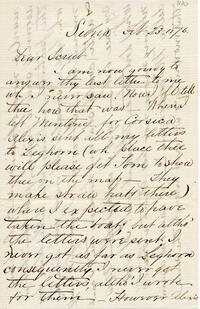 Feb 23. 1876.
Dear
I am now going to
answer thy last letter to me
wh I never saw. Now I'll tell
thee how that was. When I
left Mentone for Corsica
Alexis sent all my letters
to Leghorn (wh place thee
will please get Tom to show
thee on the map — They
make straw hats there)
where I expected to have
taken the boat, but altho'
the letters were sent, I
never got as far as Leghorn
consequently I never got
the letters altho' I wrote
for them — However Alexis